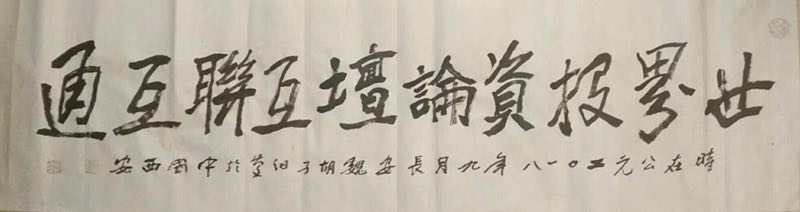 世界投資論壇互聯互通
時在公元二〇一八年九月長安魏胡子伯莫於中國西安